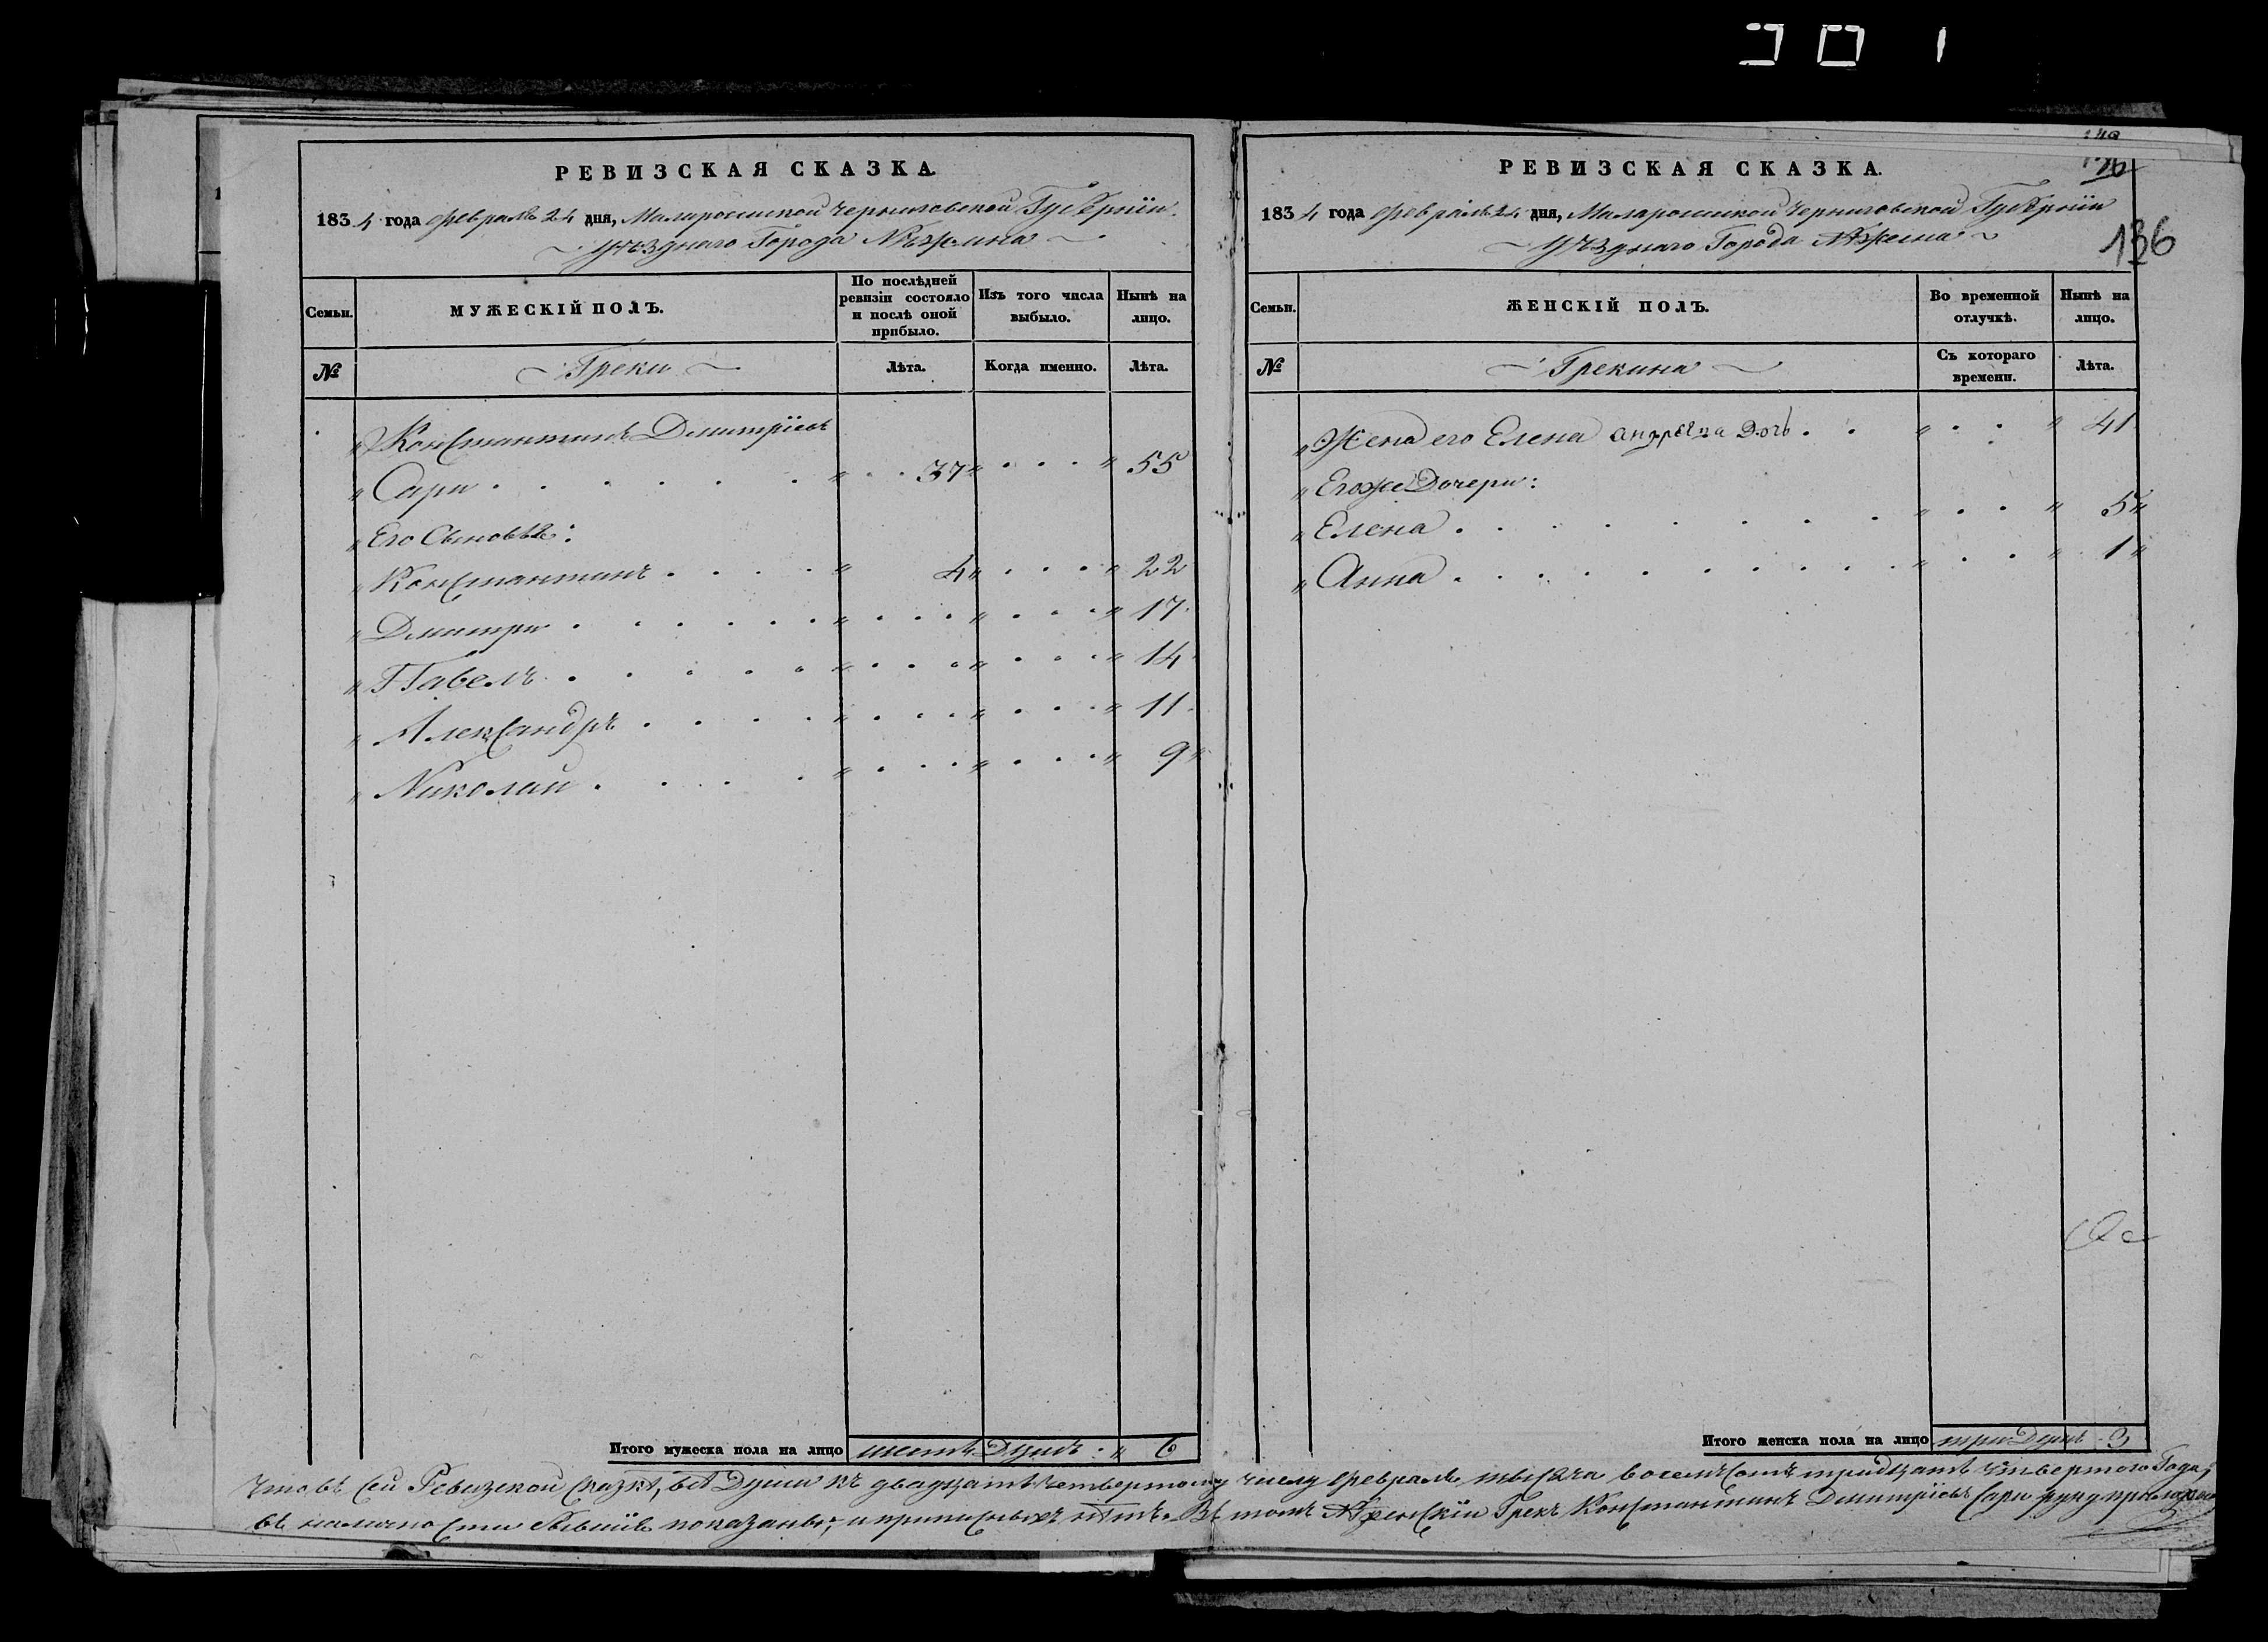 РЕВИЗСКАЯ СКАЗКА.
1834 года Февраля 24 дня, Малоросійской Черниговской Губерніи
уѣзднаго Города Нѣжина
Семьи. МУЖЕСКІЙ ПОЛЪ. По послѣдней ревизіи состояло и послѣ оной прибыло. Изъ того числа выбыло. Нынѣ на лицо.
№ Греки Лѣта. Когда именно. Лѣта.
Константинъ Дмитріевъ
Сари 37 55
Его Сыновья:
Константинъ 4 22
Дмитри 17
Павелъ 14
Александръ 11
Николай 9
Итого мужеска пола на лицо шесть Душъ 6
140
136
136
РЕВИЗСКАЯ СКАЗКА.
1834 года Февраля 24 дня, Малоросійской Черниговской Губерніи
уѣзднаго Города Нѣжина
Семьи. ЖЕНСКІЙ ПОЛЪ. Во временной отлучкѣ. Нынѣ на лицо.
№ Грекина Съ котораго времени. Лѣта.
Жена его Елена Андрѣева Дочь 41
Его же Дочери:
Елена 5
Анна 1
Итого женска пола на лицо три Души 3
Что въ сей Ревизской Сказкѣ, всѣ Души къ двадцать четвертому числу Февраля тысяча восемъ сотъ тридцать четвертого Года,
въ наличности бывшіе показаны, и прописныхъ нѣтъ. Въ томъ Нѣженскій Грекъ Константинъ Дмитріевъ Сари руку приложилъ